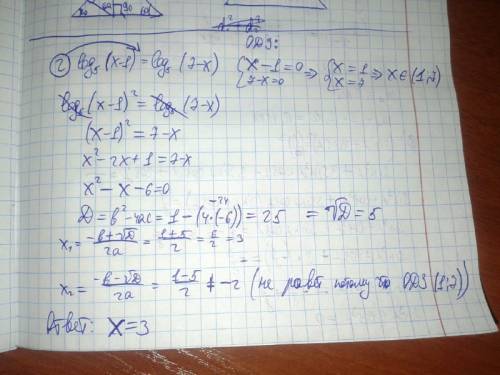 ОДЗ:
2) log₅ (x-1) = log₅ (7-x) { x-1=0 7-x=0 => { x=1 x=7 => x∈(1;7)
log₅ (x-1)² = log₅ (7-x)
(x-1)² = 7-x
x² - 2x + 1 = 7-x
x² - x - 6 = 0
D = b² - 4ac = 1 - (4·(-6)) = 25 = √D = 5
-24
x₁ = (-b+√D)/2a = (1+5)/2 = 6/2 = 3
x₂ = (-b-√D)/2a = (1-5)/2 ≠ -2 (не равен потому что ОДЗ (1;7))
Ответ: x=3